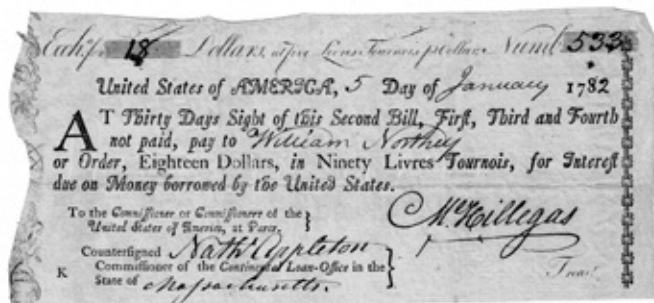 Exch. for 18 Dollars, at five Livres Tournois pr Dollar. Numb. 533
United States of AMERICA, 5 Day of January 1782
AT Thirty Days Sight of this Second Bill, First, Third and Fourth
not paid, pay to William Northey
or Order, Eighteen Dollars, in Ninety Livres Tournois, for Interest
due on Money borrowed by the United States.
To the Commissioner or Commissioners of the
United States of America, at Paris.
M Hillegas
Countersigned Nathl Appleton
Commissioner of the Continental Loan-Office in the
K
State of Massachusetts.
Treasr